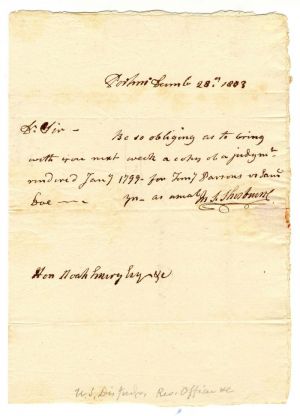 Decemb 28th 1803
Dr Sir - Be so obliging as to bring
with you next week a copy of a judgmt
rendered Jany 1799 - for Timy Parsons vs Saml
yrs as usual J. S. Sherburne
Hon Noah Emery Esq
U.S. Dis Judge, Rev. Officer &c